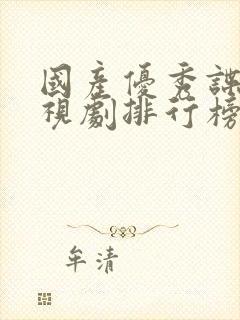 國產優秀諜
視劇排行榜
牟清